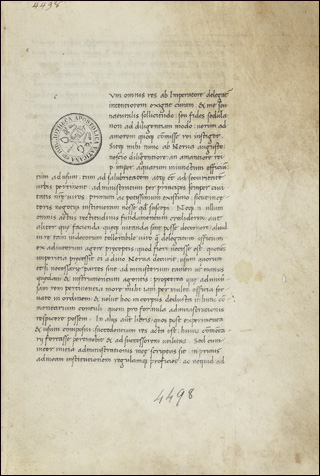 4498
VM omnis res ab Imperatore delegata
intentiorem exigat curam, & me seu
naturalis sollicitudo, seu fides sedula
non ad diligentiam modo: uerum ad
amorem quoque comisse rei instiget
Sitque mihi nunc ab Nerua augusto
nescio diligentiore, an amantiore rei
p. imper. aquarum iniunctum officium
tum ad usum; tum ad salubritatem atque & ad securitatem
urbis pertinens: administratum per principes semper ciuita
tis nrae uiros. primum ac potissimum existimo: sicut in ce-
teris negotiis institueram nosse quod suscepi. Neque. n. ullum
omnis actus fundamentum crediderim: aut
aliter que facienda, queque uitanda sint posse decerni: aliud
ue tam indecorum tollerabile uiro quam delegatum officium
ex adiutorum agere preceptis: quod fieri necesse est: quotiens
imperitia
& si necessarie partes sint ad ministerium tamen ut manus
quedam & instrumentum agentis:
more mihi iam per multa officia ser
uato in ordinem: & uelut hoc in corpus deducta in hunc co
mentarium contuli: quem pro formula administrationis
respicere possem. In aliis aut libris: quos post experimenta
& usum composui: succedentium res acta est. huius comenta
rii fortasse pertinebit & ad successorem utilitas. Sed cum
inter initia administrationis mee scriptus sit: in primis
ad meam institutionem regulamque proficiet. ac nequid ad
4498